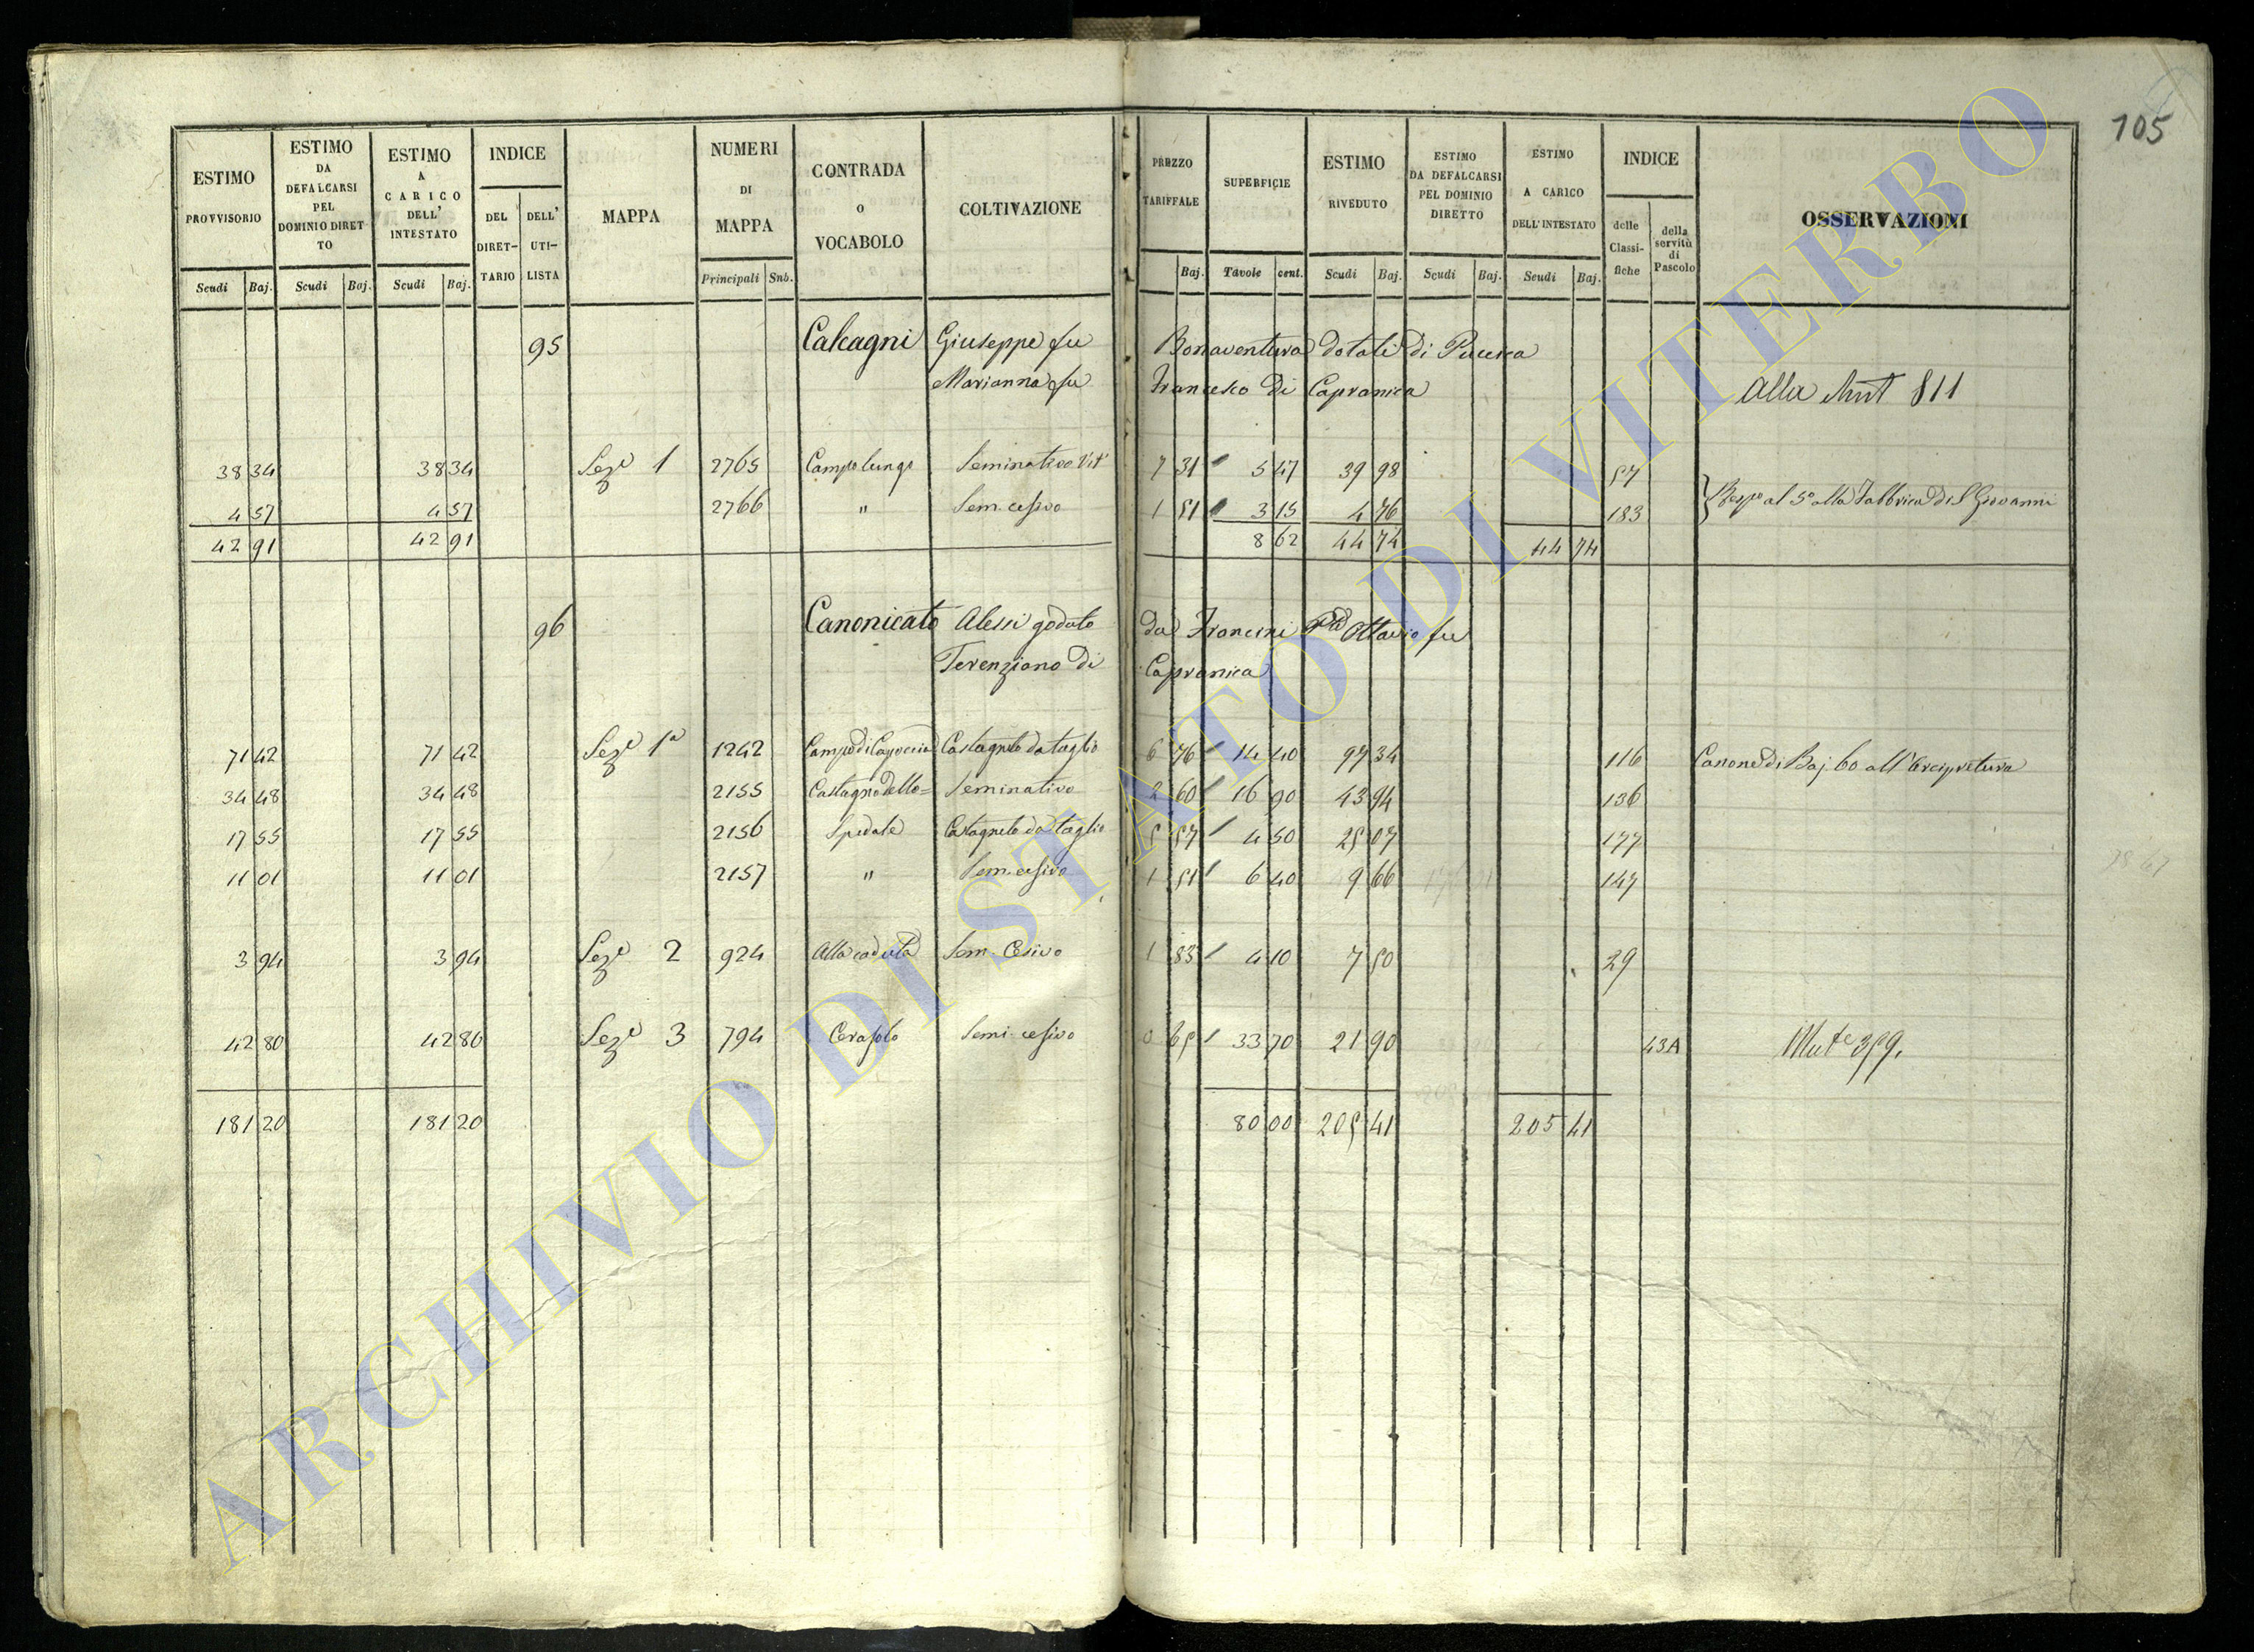 105
ESTIMO PROVVISORIO | ESTIMO DA DEFALCARSI PEL DOMINIO DIRETTO | ESTIMO A CARICO DELL' INTESTATO | INDICE | MAPPA | NUMERI DI MAPPA | CONTRADA O VOCABOLO | COLTIVAZIONE | PREZZO TARIFFALE | SUPERFICIE | ESTIMO RIVEDUTO | ESTIMO DA DEFALCARSI PEL DOMINIO DIRETTO | ESTIMO A CARICO DELL' INTESTATO | INDICE | OSSERVAZIONI
DEL DIRET-TARIO | DELL' UTI-LISTA | delle Classi-fiche | della servitù di Pascolo
Scudi | Baj. | Scudi | Baj. | Scudi | Baj. | Principali | Snb. | Baj. | Tavole | cent. | Scudi | Baj. | Scudi | Baj. | Scudi | Baj.
95 Calcagni Giuseppe fu Bonaventura dotali di
Marianna fu Francesco di Capranica Alla Mut 811
38 34 | 38 34 | Seze 1 | 2765 | Campo lungo | Seminativo Vit | 7 31 | 5 47 | 39 98 | 57
4 57 | 4 57 | 2766 | " | Sem. cesivo | 1 51 | 3 15 | 4 76 | 183 | al 5o alla Fabbrica di S Giovanni
42 91 | 42 91 | 8 62 | 44 74 | 44 74
96 Canonicato Alessi goduto da Francini Ottavio fu
Terenziano di Capranica
71 42 | 71 42 | Seze 1a | 1242 | Campo di | Castagneto da taglio | 6 76 | 14 40 | 97 34 | 116 | Canone di Baj. 60 all'Arcipretura
34 48 | 34 48 | 2155 | Castagno dello= | Seminativo | 2 60 | 16 90 | 43 94 | 136
17 55 | 17 55 | 2156 | Spedale | Castagneto da taglio | 5 57 | 4 50 | 25 07 | 177
11 01 | 11 01 | 2157 | " | Sem. cesivo | 1 51 | 6 40 | 9 66 | 147
3 94 | 3 94 | Seze 2 | 924 | Alla caduta | Sem. Cesivo | 1 83 | 4 10 | 7 50 | 29
42 80 | 42 80 | Seze 3 | 794 | Cerasolo | Semi. cesivo | 0 65 | 33 70 | 21 90 | 43A | Mute 359.
181 20 | 181 20 | 80 00 | 205 41 | 205 41
ARCHIVIO DI STATO DI VITERBO